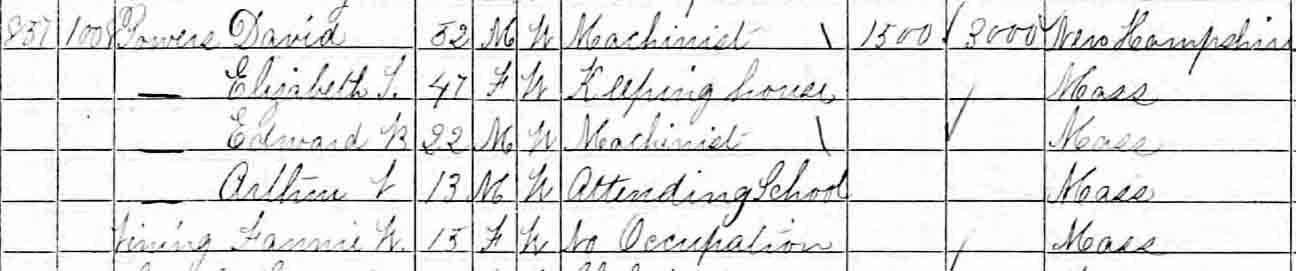 857 1008 Powers David 52 M W Machinist \ 1500 3000 New Hampshire
— Elizabeth S. 47 F W Keeping house / Mass
— Edward 22 M W Machinist \ / Mass
— Arthur 13 M W Attending School Mass
Fannie W. 15 F W No Occupation / Mass